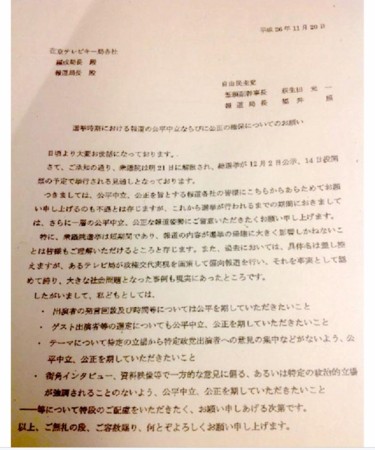 平成26年11月20日
在京テレビキー局各社
編成局長 殿
報道局長 殿
自由民主党
筆頭副幹事長 萩生田 光一
報道局長 福井 照
選挙時期における報道の公平中立ならびに公正の確保についてのお願い
日頃より大変お世話になっております。
さて、ご承知の通り、衆議院は明21日に解散され、総選挙が12月2日公示、14日投開
票の予定で挙行される見通しとなっております。
つきましては、公平中立、公正を旨とする報道各社の皆様にこちらからあらためてお願
い申し上げるのも不遜とは存じますが、これから選挙が行われるまでの期間におきまして
は、さらに一層の公平中立、公正な報道姿勢にご留意いただきたくお願い申し上げます。
特に、衆議院選挙は短期間であり、報道の内容が選挙の帰趨に大きく影響しかねないこ
とは皆様もご理解いただけるところと存じます。また、過去においては、具体名は差し控
えますが、あるテレビ局が政権交代実現を画策して偏向報道を行い、それを事実として認
めて誇り、大きな社会問題となった事例も現実にあったところです。
したがいまして、私どもとしては、
・ 出演者の発言回数及び時間等については公平を期していただきたいこと
・ ゲスト出演者等の選定についても公平中立、公正を期していただきたいこと
・ テーマについて特定の立場から特定政党出演者への意見の集中などがないよう、公
平中立、公正を期していただきたいこと
・ 街角インタビュー、資料映像等で一方的な意見に偏る、あるいは特定の政治的立場
が強調されることのないよう、公平中立、公正を期していただきたいこと
——等について特段のご配慮をいただきたく、お願い申しあげる次第です。
以上、ご無礼の段、ご容赦賜り、何とぞよろしくお願い申し上げます。